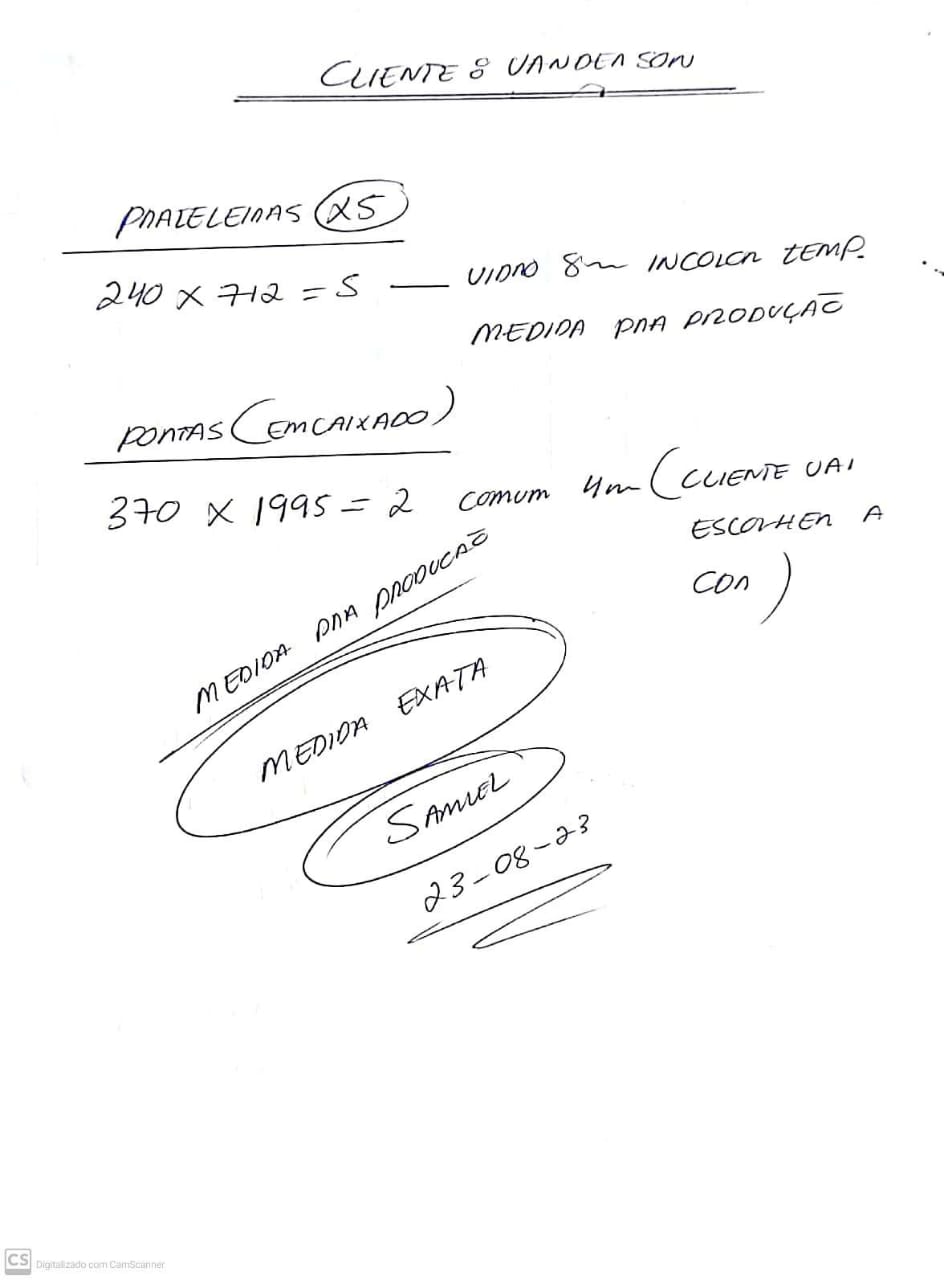 CLIENTE: VANDERSON
PRATELEIRAS (x5)
240 x 712 = 5 — VIDRO 8mm INCOLOR TEMP.
MEDIDA PRA PRODUÇÃO
PORTAS (EMCAIXADO)
370 x 1995 = 2 COMUM 4mm (CLIENTE VAI
ESCOLHER A
COR)
MEDIDA PRA PRODUCAO
MEDIDA EXATA
SAMUEL
23-08-23
CS Digitalizado com CamScanner